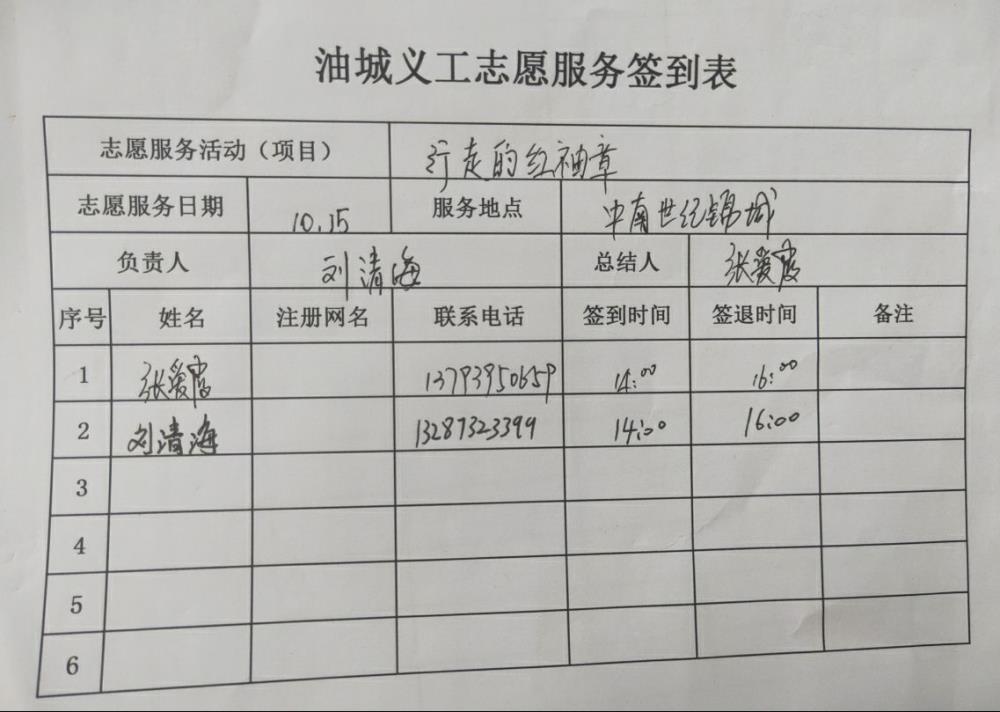 油城义工志愿服务签到表
志愿服务活动（项目） 行走的红袖章
志愿服务日期 10.15 服务地点 中南世纪锦城
负责人 刘清海 总结人 张爱霞
序号 姓名 注册网名 联系电话 签到时间 签退时间 备注
1 张爱霞 13793950659 14:00 16:00
2 刘清海 13287323399 14:00 16:00
3
4
5
6